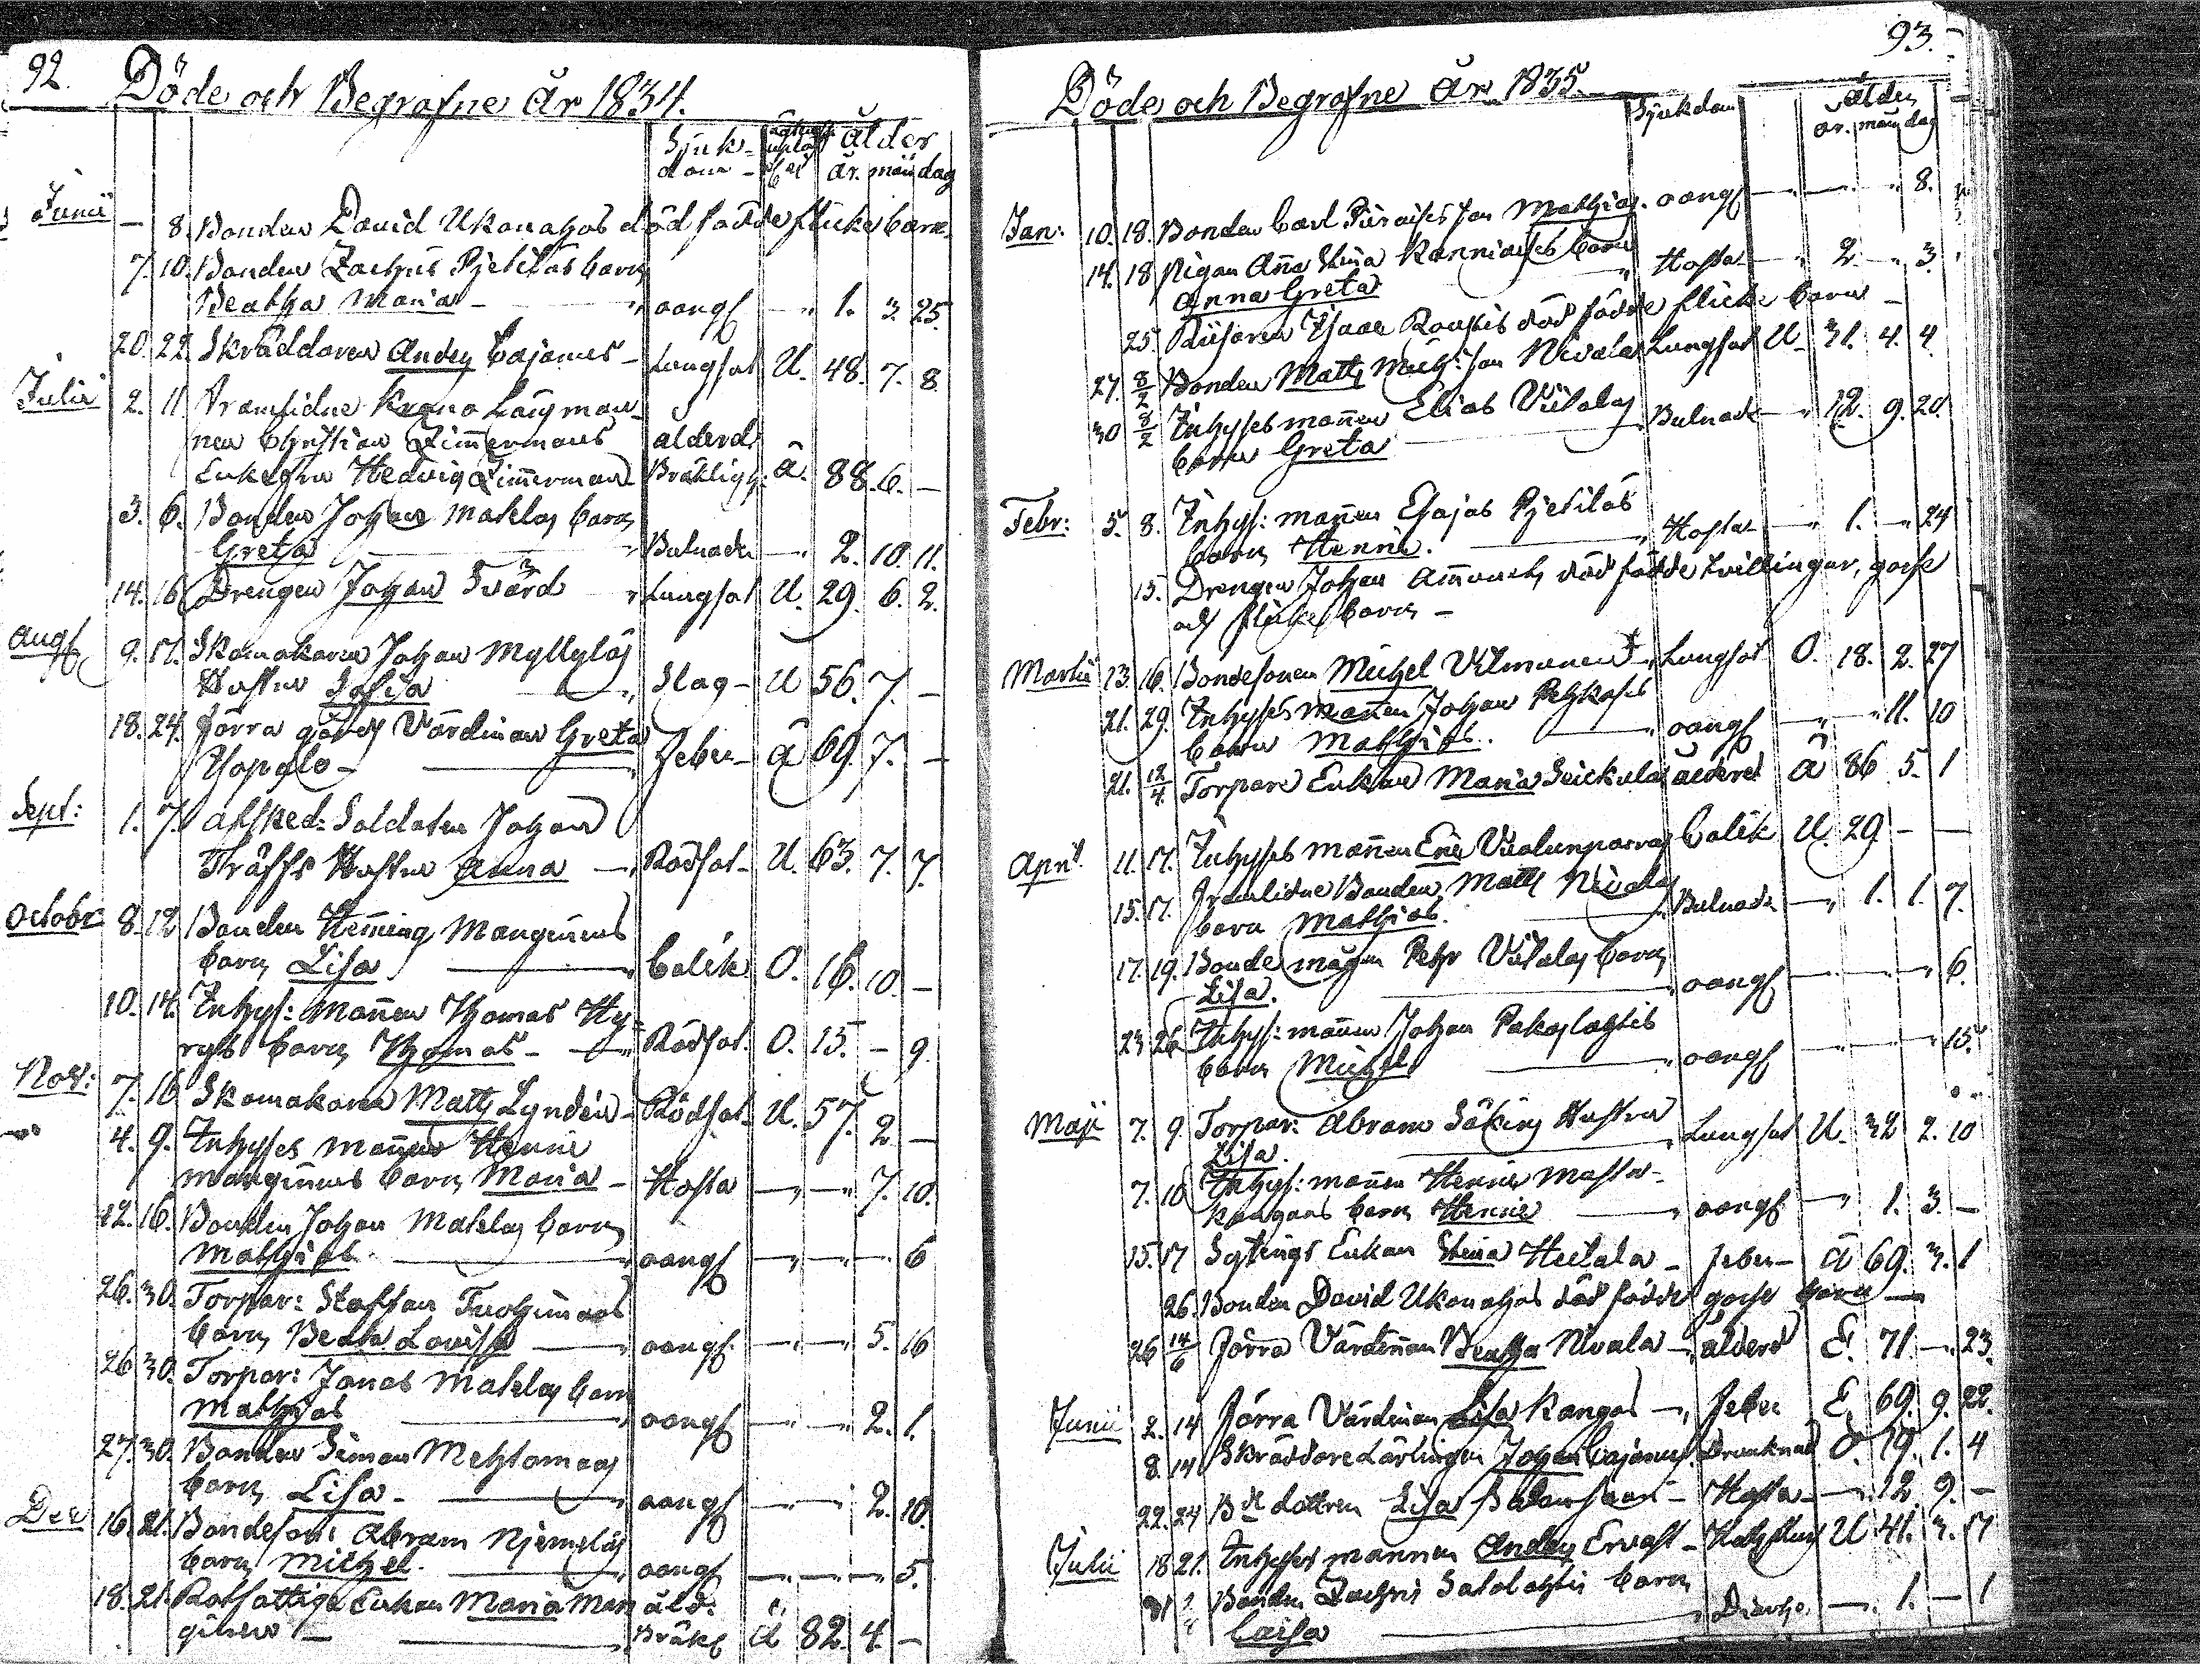 92.
Döde och Begrafne År 1834.
Sjuk=
dom
ålder
år. mån dag
Junii — 8. Bonden David Ukonahos död födde flicke barn.
7. 10. Bonden Zachris Pjetilas barn
Beatha Maria — oangf — 1. 3. 25.
20. 22. Skräddaren Anders Cajanus — Lungsot U. 48. 7. 8
Julii 2. 11 Framlidne Krono
nen Christian Zimmermans ålderd:
Enkefru Hedvig Zimmerman Bräkligh: ä. 88. 6. —
3. 6. Bonden Johan Matelas barn
Greta — Bulnader — 2. 10. 11.
14. 16 Drengen Johan Svärd — Lungsot U. 29. 6. 2.
Aug 9. 17. Skomakaren Johan Myllyläs
Hustru Sofia — Slag — U 56. 7. —
18. 24. Förra gårds Värdinan Greta
— Feber — ä 69. 7. —
Sept: 1. 7. Afsked: Soldaten Johan
Träffs Hustru Anna — Rödsot — U. 63. 7. 7.
Octobr 8. 12 Bonden Hemming Manginens
barn Lisa — Colik O. 16. 10. —
10. 14. Inhys: Mannen Thomas Hy=
rys barn Thomas — Rödsot. O. 15. — 9.
Nov: 7. 16 Skomakaren Matts Lyndén — Rödsot. U. 57. 2. —
4. 9. Inhyses mannen Henric
Manginens barn Maria — Hosta — 7. 10.
12. 16. Bonden Johan Matelas barn
Mathias — oangf — 6
26. 30. Torpar: Staffan
barn Beata Lovisa — oangf — 5. 16
26 30. Torpar: Jonas Matelas barn
Mathias — oangf — 2. 1.
27. 30. Bonden Simon Mehtomaas
barn Lisa — oangf — 2. 10.
Dec 16. 21. Bondeson: Abram Njemeläs
barn Michel. — oangf — 5.
18. 21. Rotfattige Enkan Maria Man åld:
ginen — Bräkl ä 82. 4. —
93.
Döde och Begrafne År 1835.
Sjukdom
ålder
år. mån dag
Jan: 10. 18. Bonden Carl son Mathias. oangf — 8.
14. 18 Pigan Anna Stina barn
Anna Greta — Hosta — 2. — 3.
25. Isaac död födde flicke barn —
27. 8/2 Bonden Matts Mich: son Nivala Lungsot U. 31. 4. 4.
30 8/2 Inhyses mannen Elias Viitalas Bulnader — 12. 9. 20.
barn Greta
Febr: 5. 8. Inhys: mannen Esajas Pjetilas
barn Henric. — Hosta — 1. — 24
15. Drengen Johan död födde tvillingar, gosse
och flicke barn —
Martii 13. 16. Bondesonen Michel Lungsot O. 18. 2. 27
21. 29. Inhyses mannen Johan
barn Mathias. — oangf — 11. 10
21. 12/4. Torpare Enkan Maria ålderd ä 86 5. 1
April. 11. 17. Inhyses mannen Colik U. 29 — —
15. 17. Framlidne Bonden Matts Nivalas
barn Mathias. — Bulnader — 1. 1. 7.
17. 19. Bonde mågen Pehr Viitalas barn
Lisa. — oangf — 6.
23 26 Inhys: mannen Johan
barn Michel — oangf — 15.
Maji 7. 9. Torpar: Abram Hustru
Lisa. — Lungsot U. 32 2. 10
7. 10 Inhys: mannen Henric Masta=
kangas barn Henric — oangf — 1. 3. —
15. 17 Sytings Enkan Stina Hietala — Feber — ä 69. 3. 1
26. Bonden David Ukonahos död födde gosse barn —
26 14/6 Förra Värdinnan Beatha Nivala — ålderd E. 71. — 23.
Junii 2. 14 Förra Värdinan Lisa Kangas — Feber E 69. 9. 22.
8. 14 Skräddare Lärlingen Johan Cajanus. Drunknad O. 19. 1. 4
22. 24 dottren Lisa — Hosta — 12. 9. —
Julii 18 21. Inhyses mannen Anders Ervast — U 41. 3. 17
31 Bonden Zachris barn
Caisa — 1. — 1